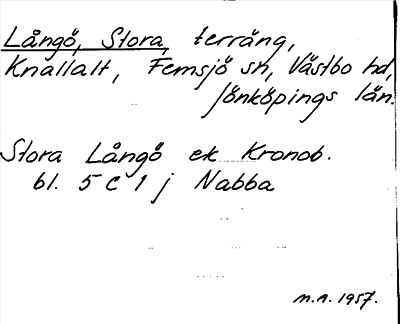 Långö, Stora, terräng,
Knallalt, Femsjö sn, Västbo hd,
Jönköpings län.
Stora Långö ek Kronob.
bl. 5 C 1 j Nabba
m.a. 1957.